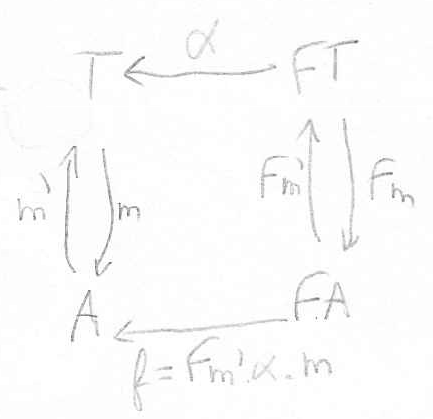 α
T FT
m' m Fm' Fm
A FA
f = Fm'.α.m